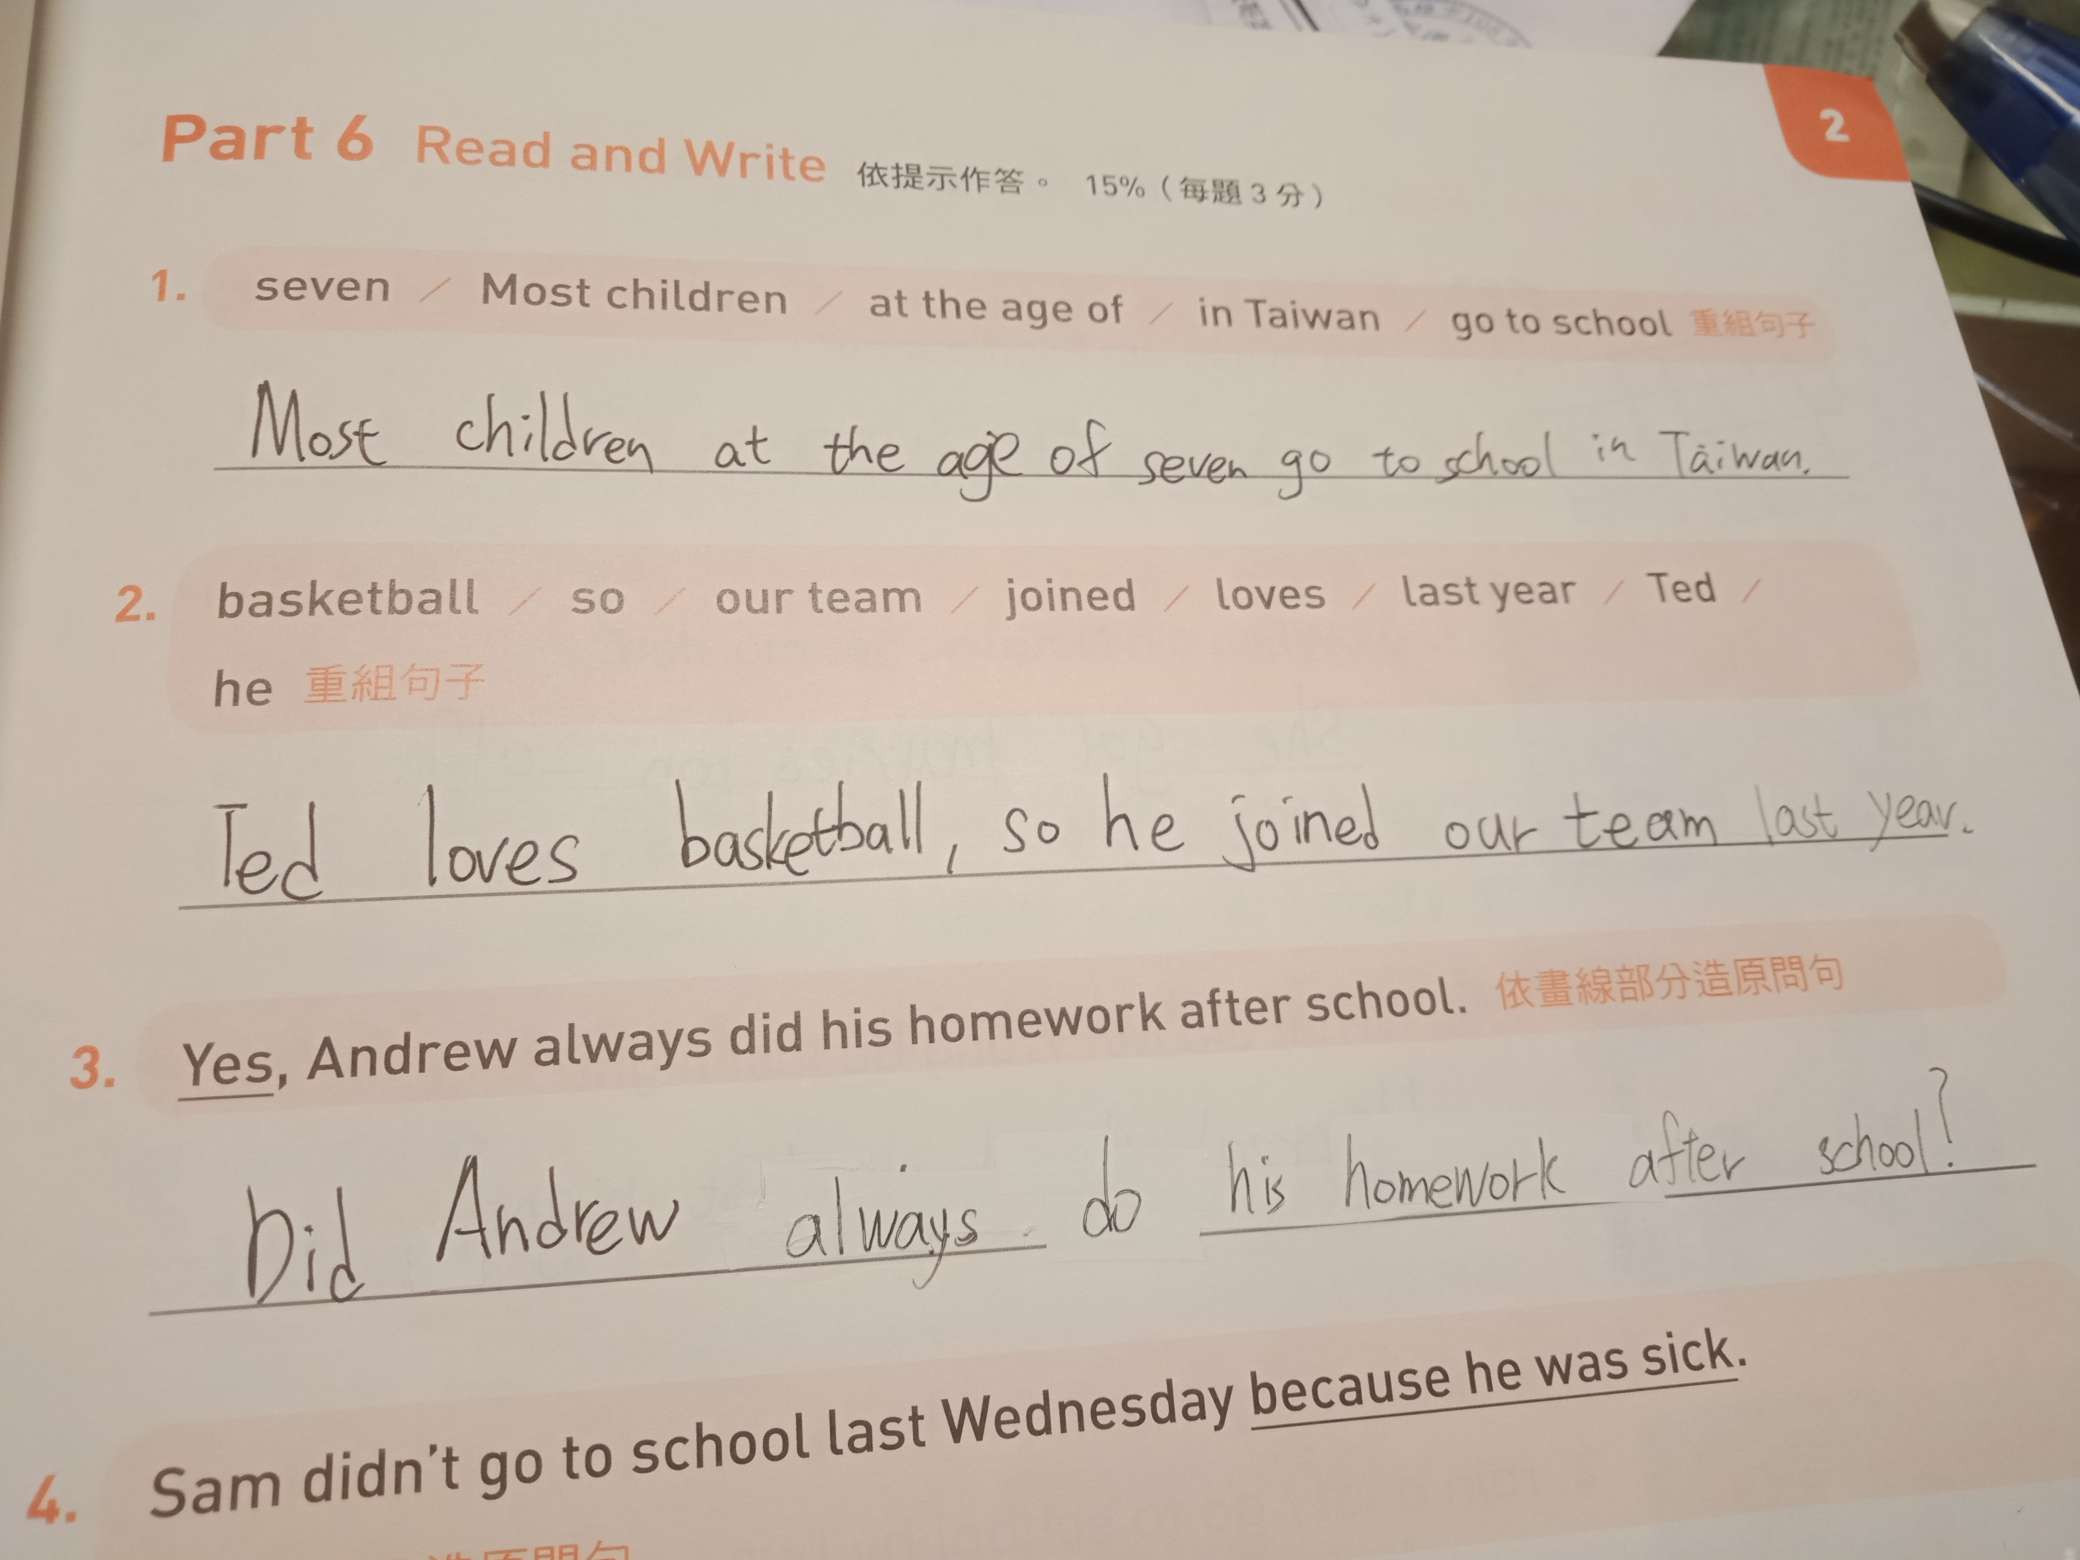 2
Part 6 Read and Write 依提示作答。 15%（每題3分）
1. seven / Most children / at the age of / in Taiwan / go to school 重組句子
Most children at the age of seven go to school in Taiwan.
2. basketball / so / our team / joined / loves / last year / Ted /
he 重組句子
Ted loves basketball, so he joined our team last year.
3. Yes, Andrew always did his homework after school. 依畫線部分造原問句
Did Andrew always do his homework after school?
4. Sam didn't go to school last Wednesday because he was sick.
造原問句